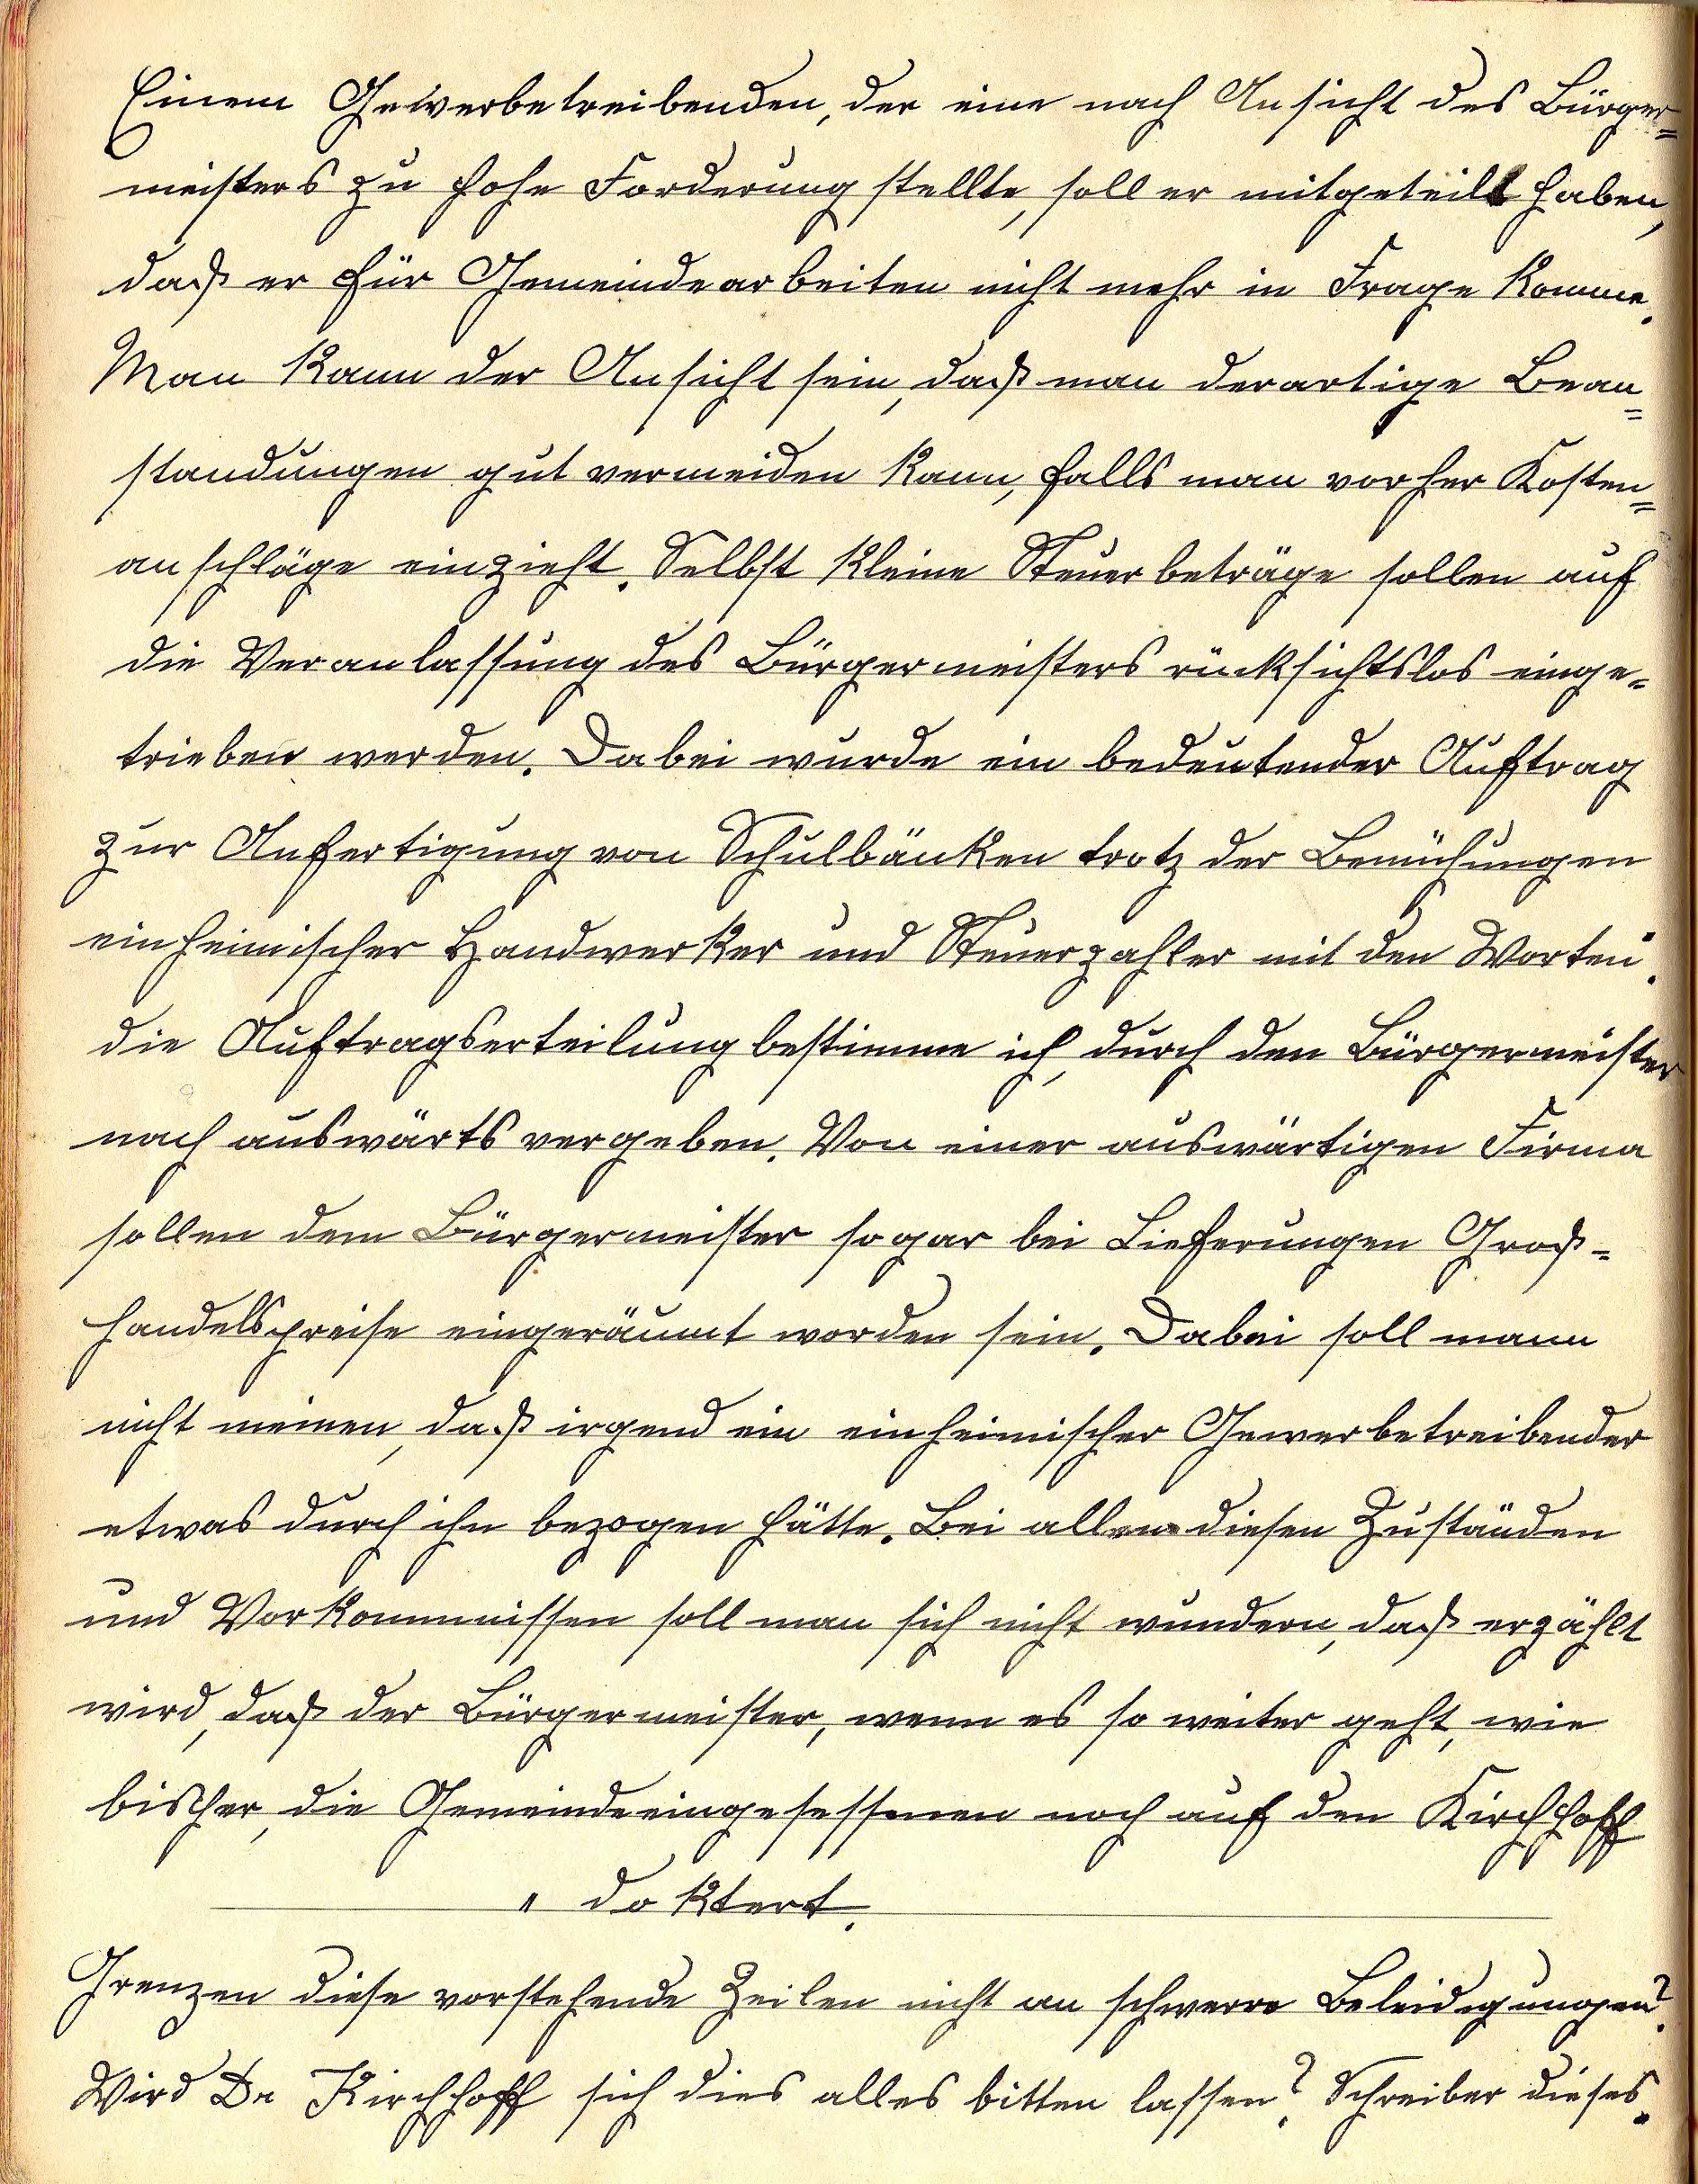 Einem Gewerbetreibenden, der eine nach Ansicht des Bürger=
meisters zu hohe Forderung stellte, soll er mitgeteilt haben,
daß er für Gemeindearbeiten nicht mehr in Frage komme.
Man kann der Ansicht sein, daß man derartige Bean=
standungen gut vermeiden kann, falls man vorher Kosten=
anschläge einzieht. Selbst kleine Steuerbeträge sollen auf
die Veranlassung des Bürgermeisters rücksichtslos einge=
trieben werden. Dabei wurde ein bedeutender Auftrag
zur Anfertigung von Schulbänken trotz der Bemühungen
einheimischer Handwerker und Steuerzahler mit den Worten.
die Auftragserteilung bestimme ich, durch den Bürgermeister
nach auswärts vergeben. Von einer auswärtigen Firma
sollen dem Bürgermeister sogar bei Lieferungen Groß=
handelspreise eingeräumt worden sein. Dabei soll mann
nicht meinen, daß irgend ein einheimischer Gewerbetreibender
etwas durch ihn bezogen hätte. Bei allen diesen Zuständen
und Vorkommnissen soll man sich nicht wundern, daß erzählt
wird, daß der Bürgermeister, wenn es so weiter geht, wie
bisher, die Gemeindeeingesessenen noch auf den Kirchhoff
" doktert.
Grenzen diese vorstehende Zeilen nicht an schwere Beleidigungen?
Wird Dr Kirchhoff sich dies alles bitten lassen? Schreiber dieses.